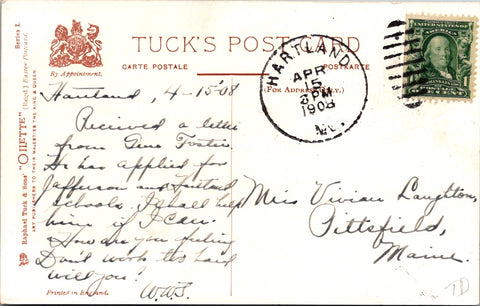 TUCK'S POST CARD
CARTE POSTALE
POSTKARTE
By Appointment.
(For Address Only.)
Raphael Tuck & Sons' "OILETTE" [Regd.] Easter Postcard. Series I.
ART PUBLISHERS TO THEIR MAJESTIES THE KING & QUEEN
HARTLAND
APR
15
3 PM
1908
ME.
Hartland, 4-15-08
Received a letter
from Gene Foster.
He has applied for
Jefferson and Hartland
Schools. I shall help
him if I can.
How are you feeling
Don't work too hard
will you?
W.W.S.
Miss Vivian Laughton,
Pittsfield,
Maine.
Printed in England.
TD